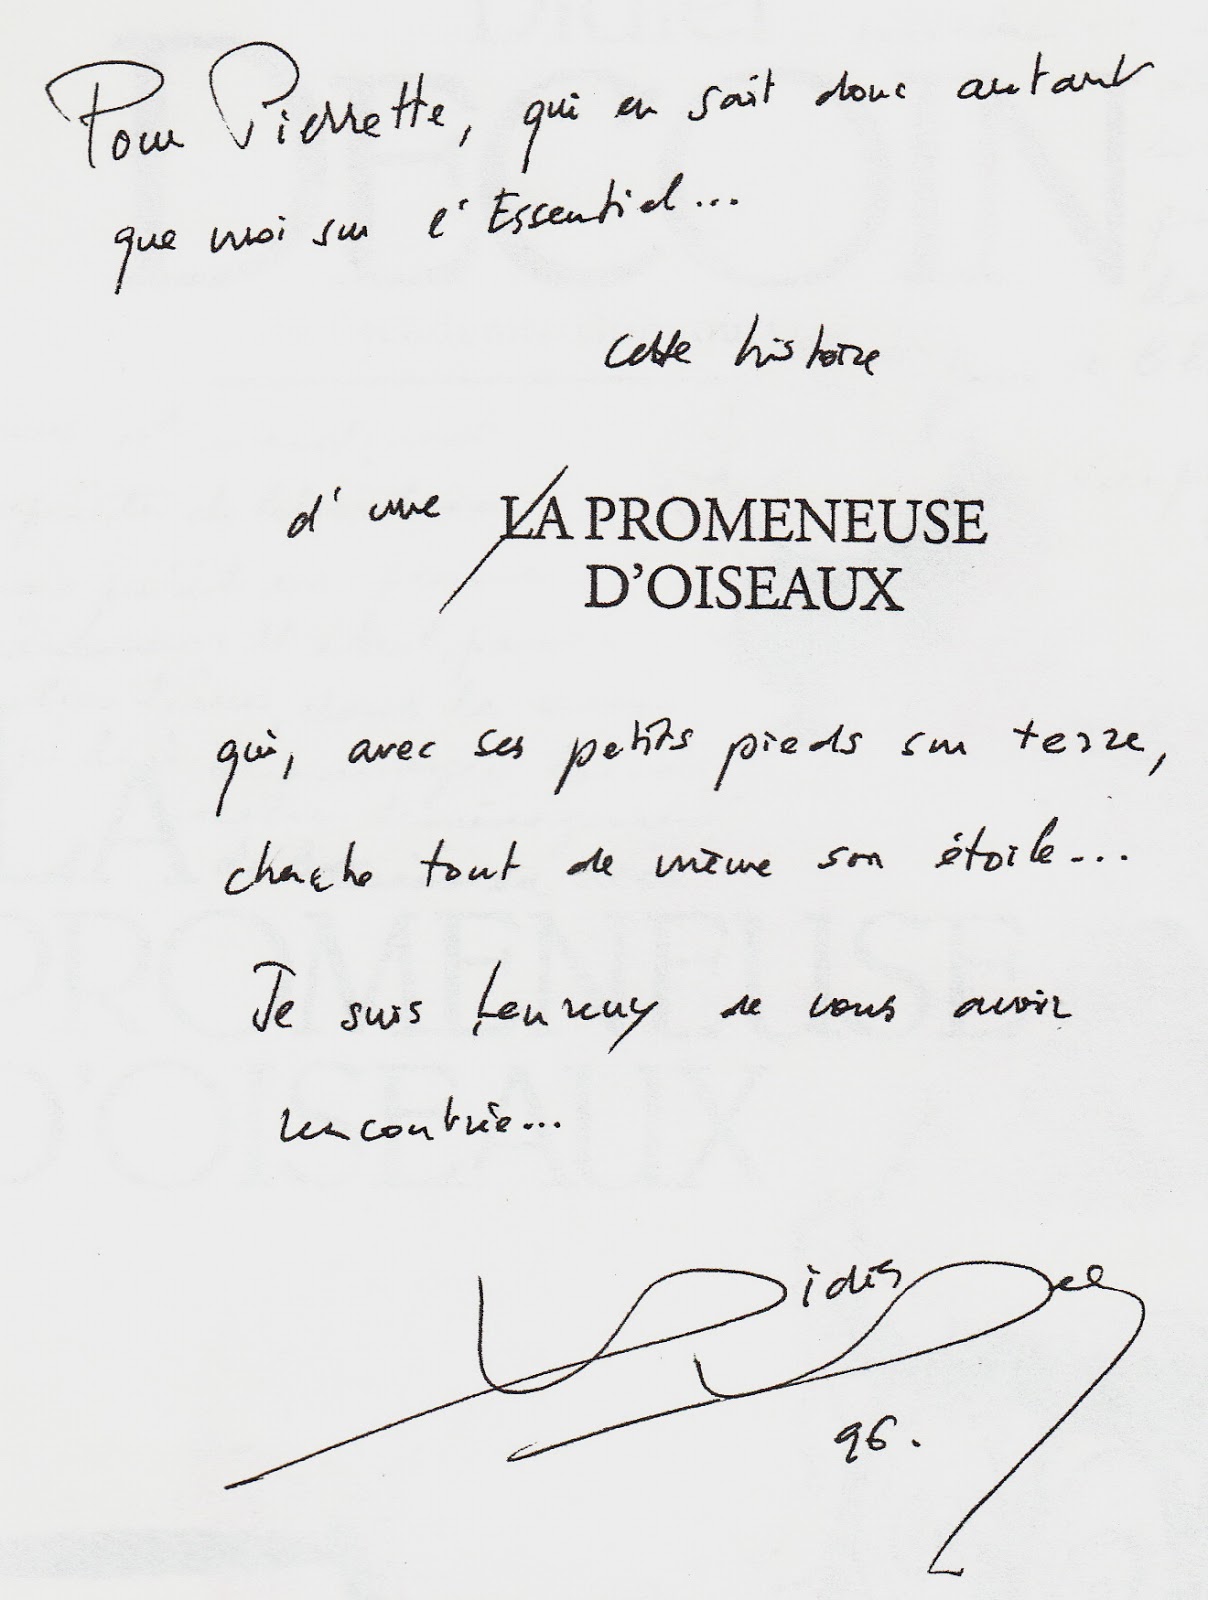 Pour Pierrette, qui en sait donc autant
que moi sur l'Essentiel...
cette histoire
d'une LA PROMENEUSE
D'OISEAUX
qui, avec ses petits pieds sur terre,
cherche tout de même son étoile...
Je suis heureux de vous avoir
rencontrée...
Didier Dec
96.